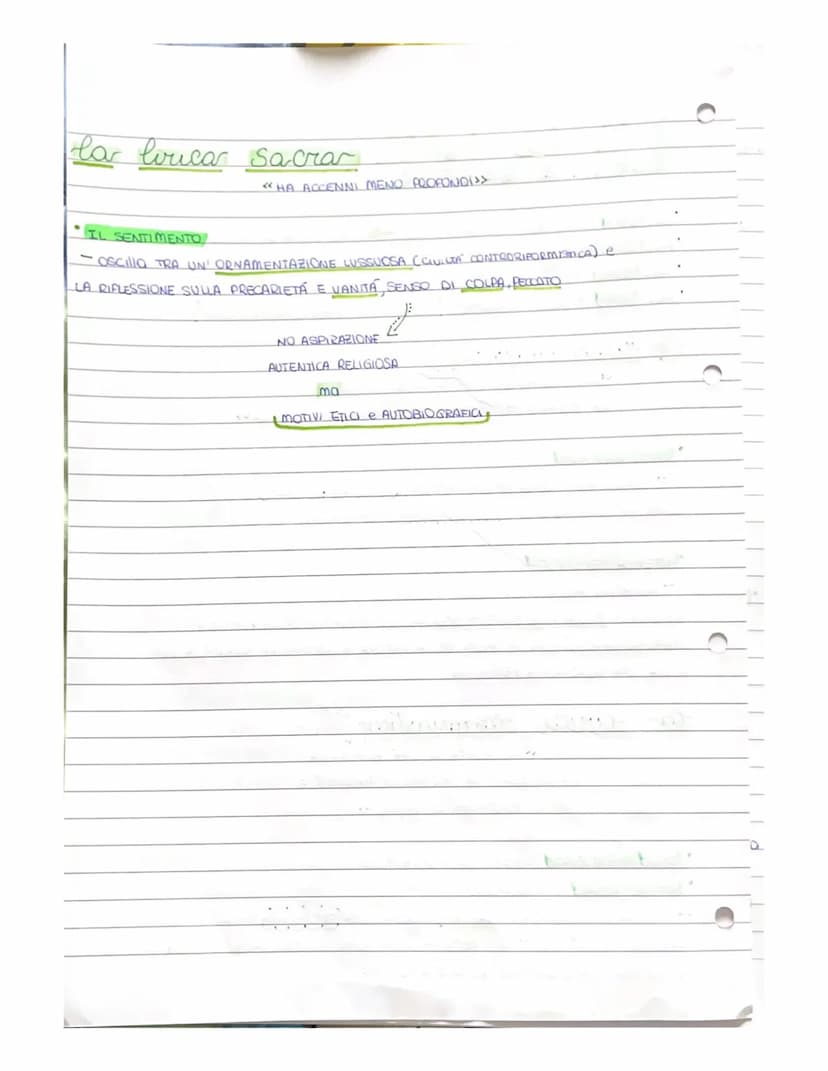 La lirica sacra
<< HA ACCENNI MENO PROFONDI>>
• IL SENTIMENTO
- OSCILLA TRA UN' ORNAMENTAZIONE LUSSUOSA (CIVILTÁ CONTRORIFORMISTICA) e
LA RIFLESSIONE SULLA PRECARIETÁ E VANITÁ, SENSO DI COLPA, PECCATO
NO ASPIRAZIONE
AUTENTICA RELIGIOSA
ma
MOTIVI ETICI e AUTOBIOGRAFICI